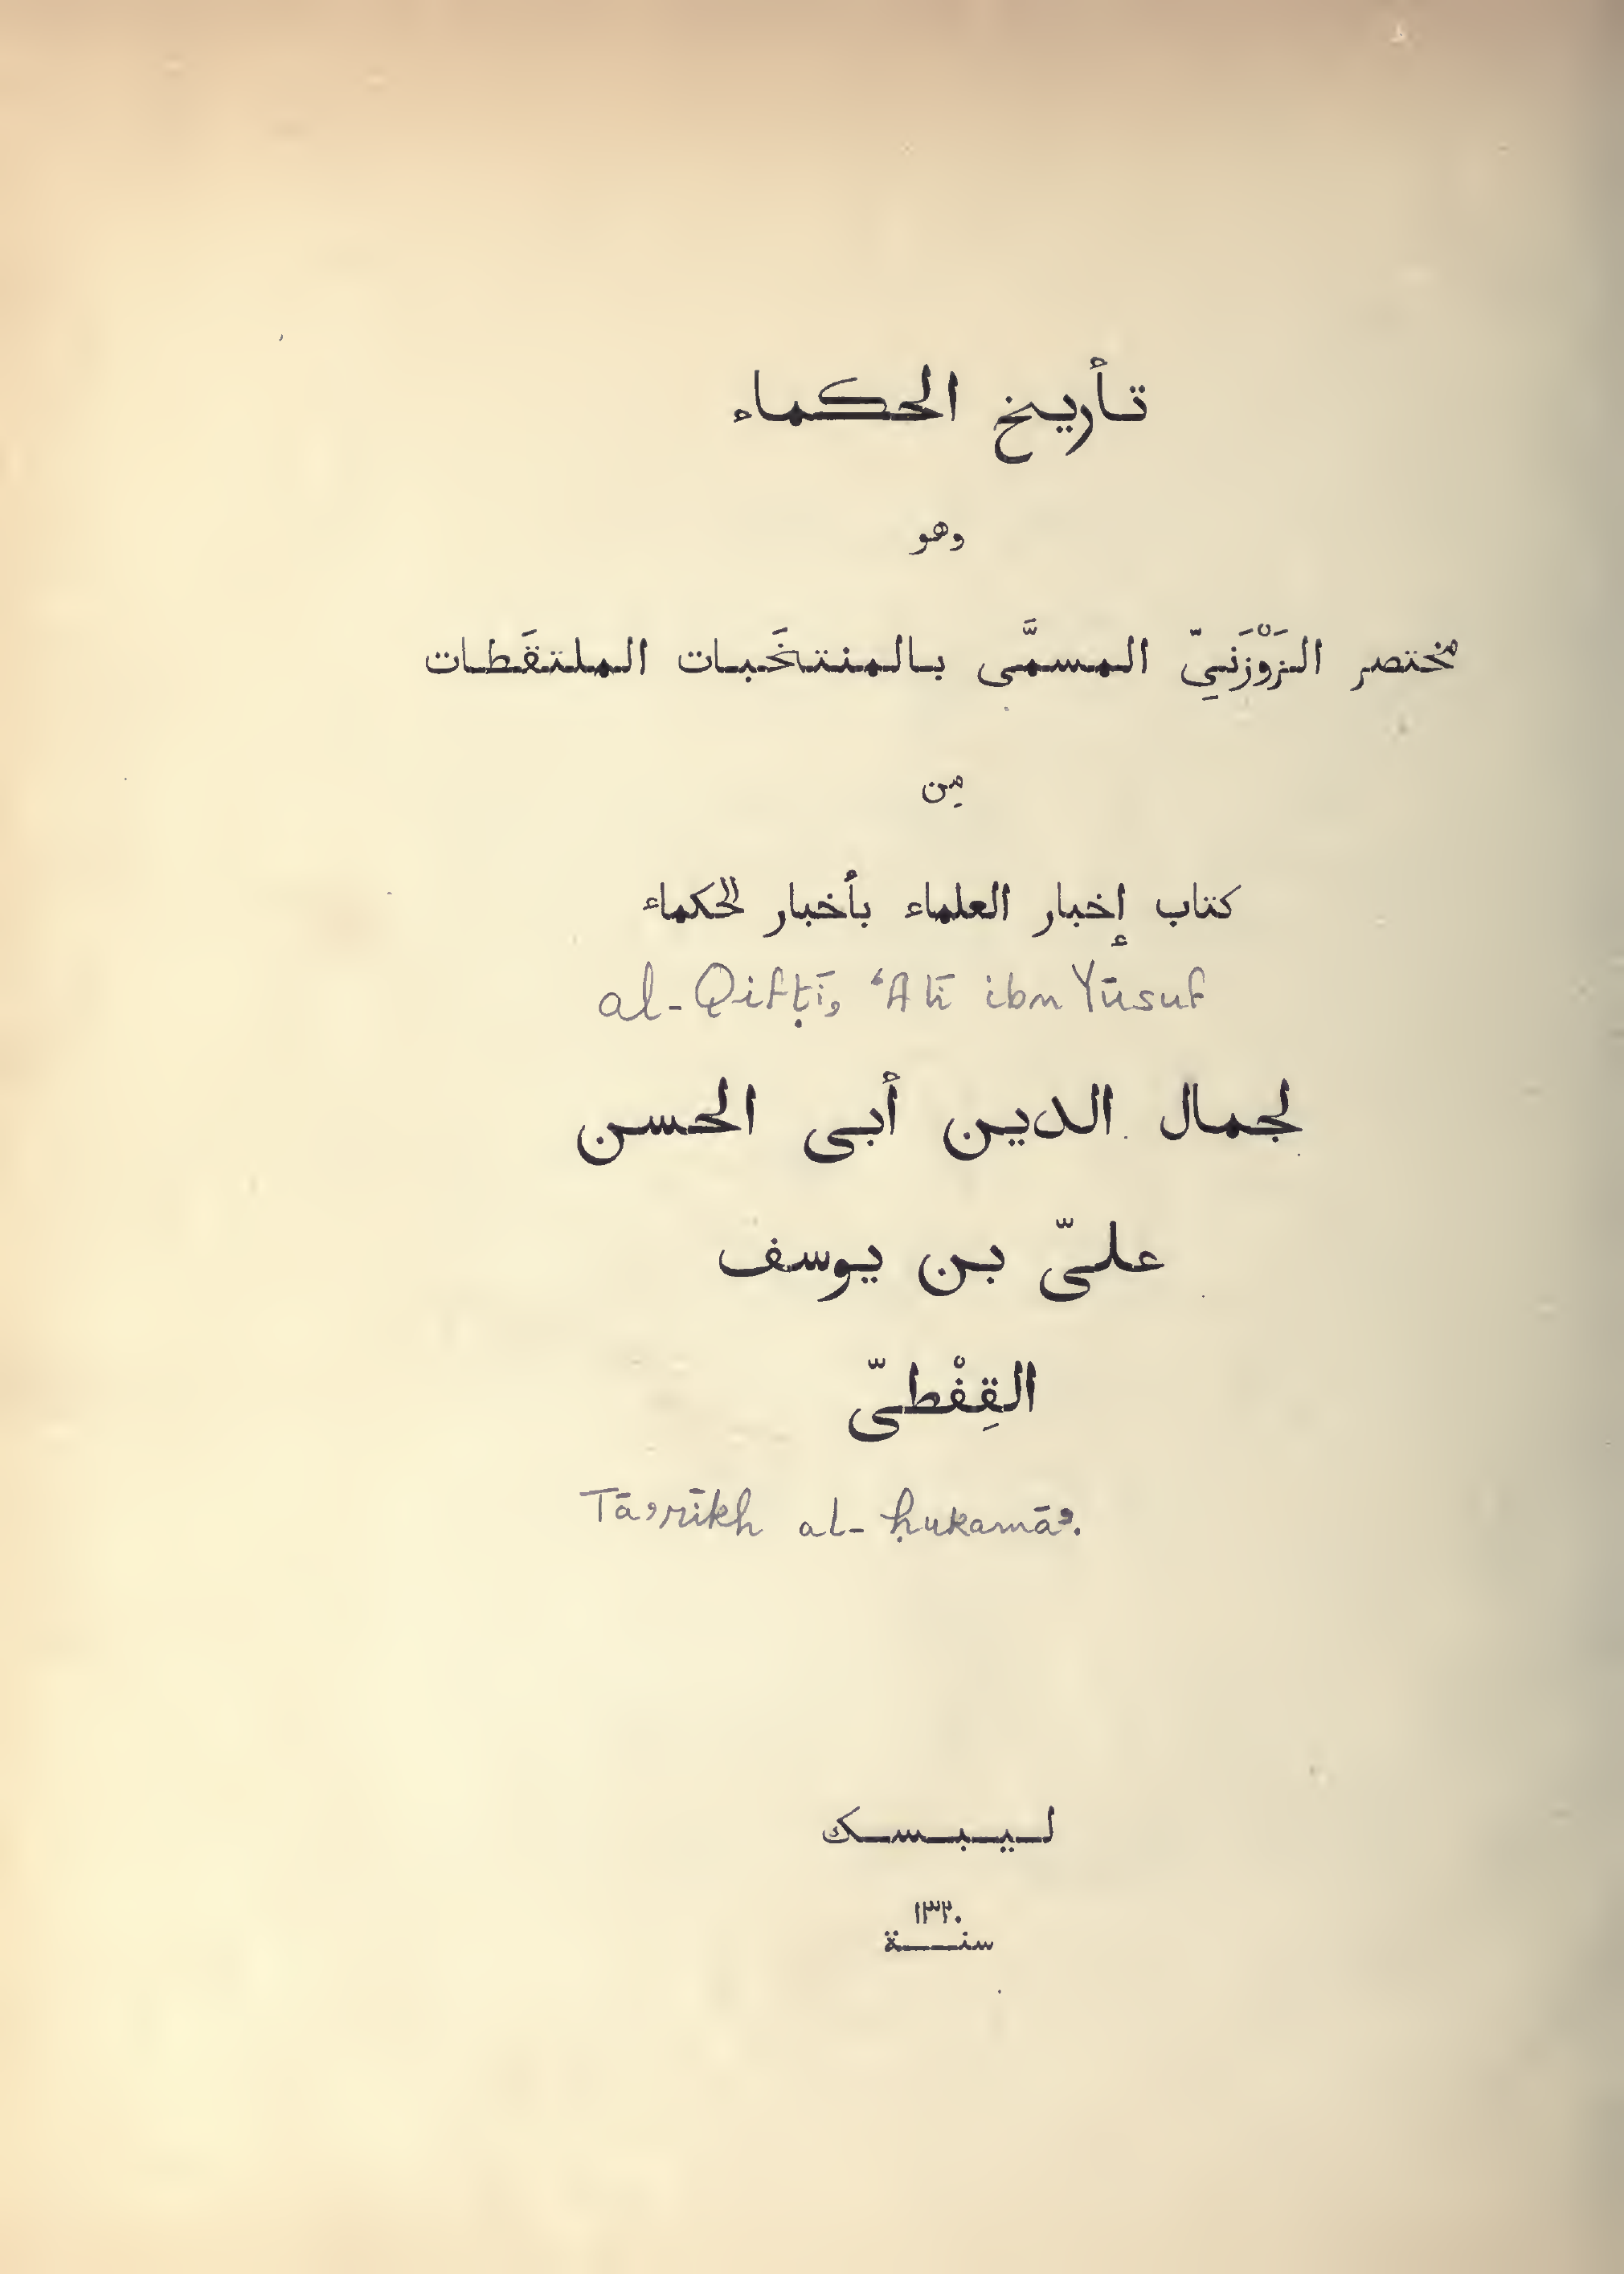 تأريخ الحكماء
وهو
مختصر الزَوْزَنىِّ المسمَّى بالمنتخَبات الملتقَطات
مِن
كتاب إخبار العلماء بأخبار الحكماء
al-Qifṭī, ʻAlī ibn Yūsuf
لجمال الدين أبى الحسن
علىّ بن يوسف
القِفْطىّ
Tāʼrīkh al-ḥukamāʼ.
ليبسك
١٣٢٠
سنة